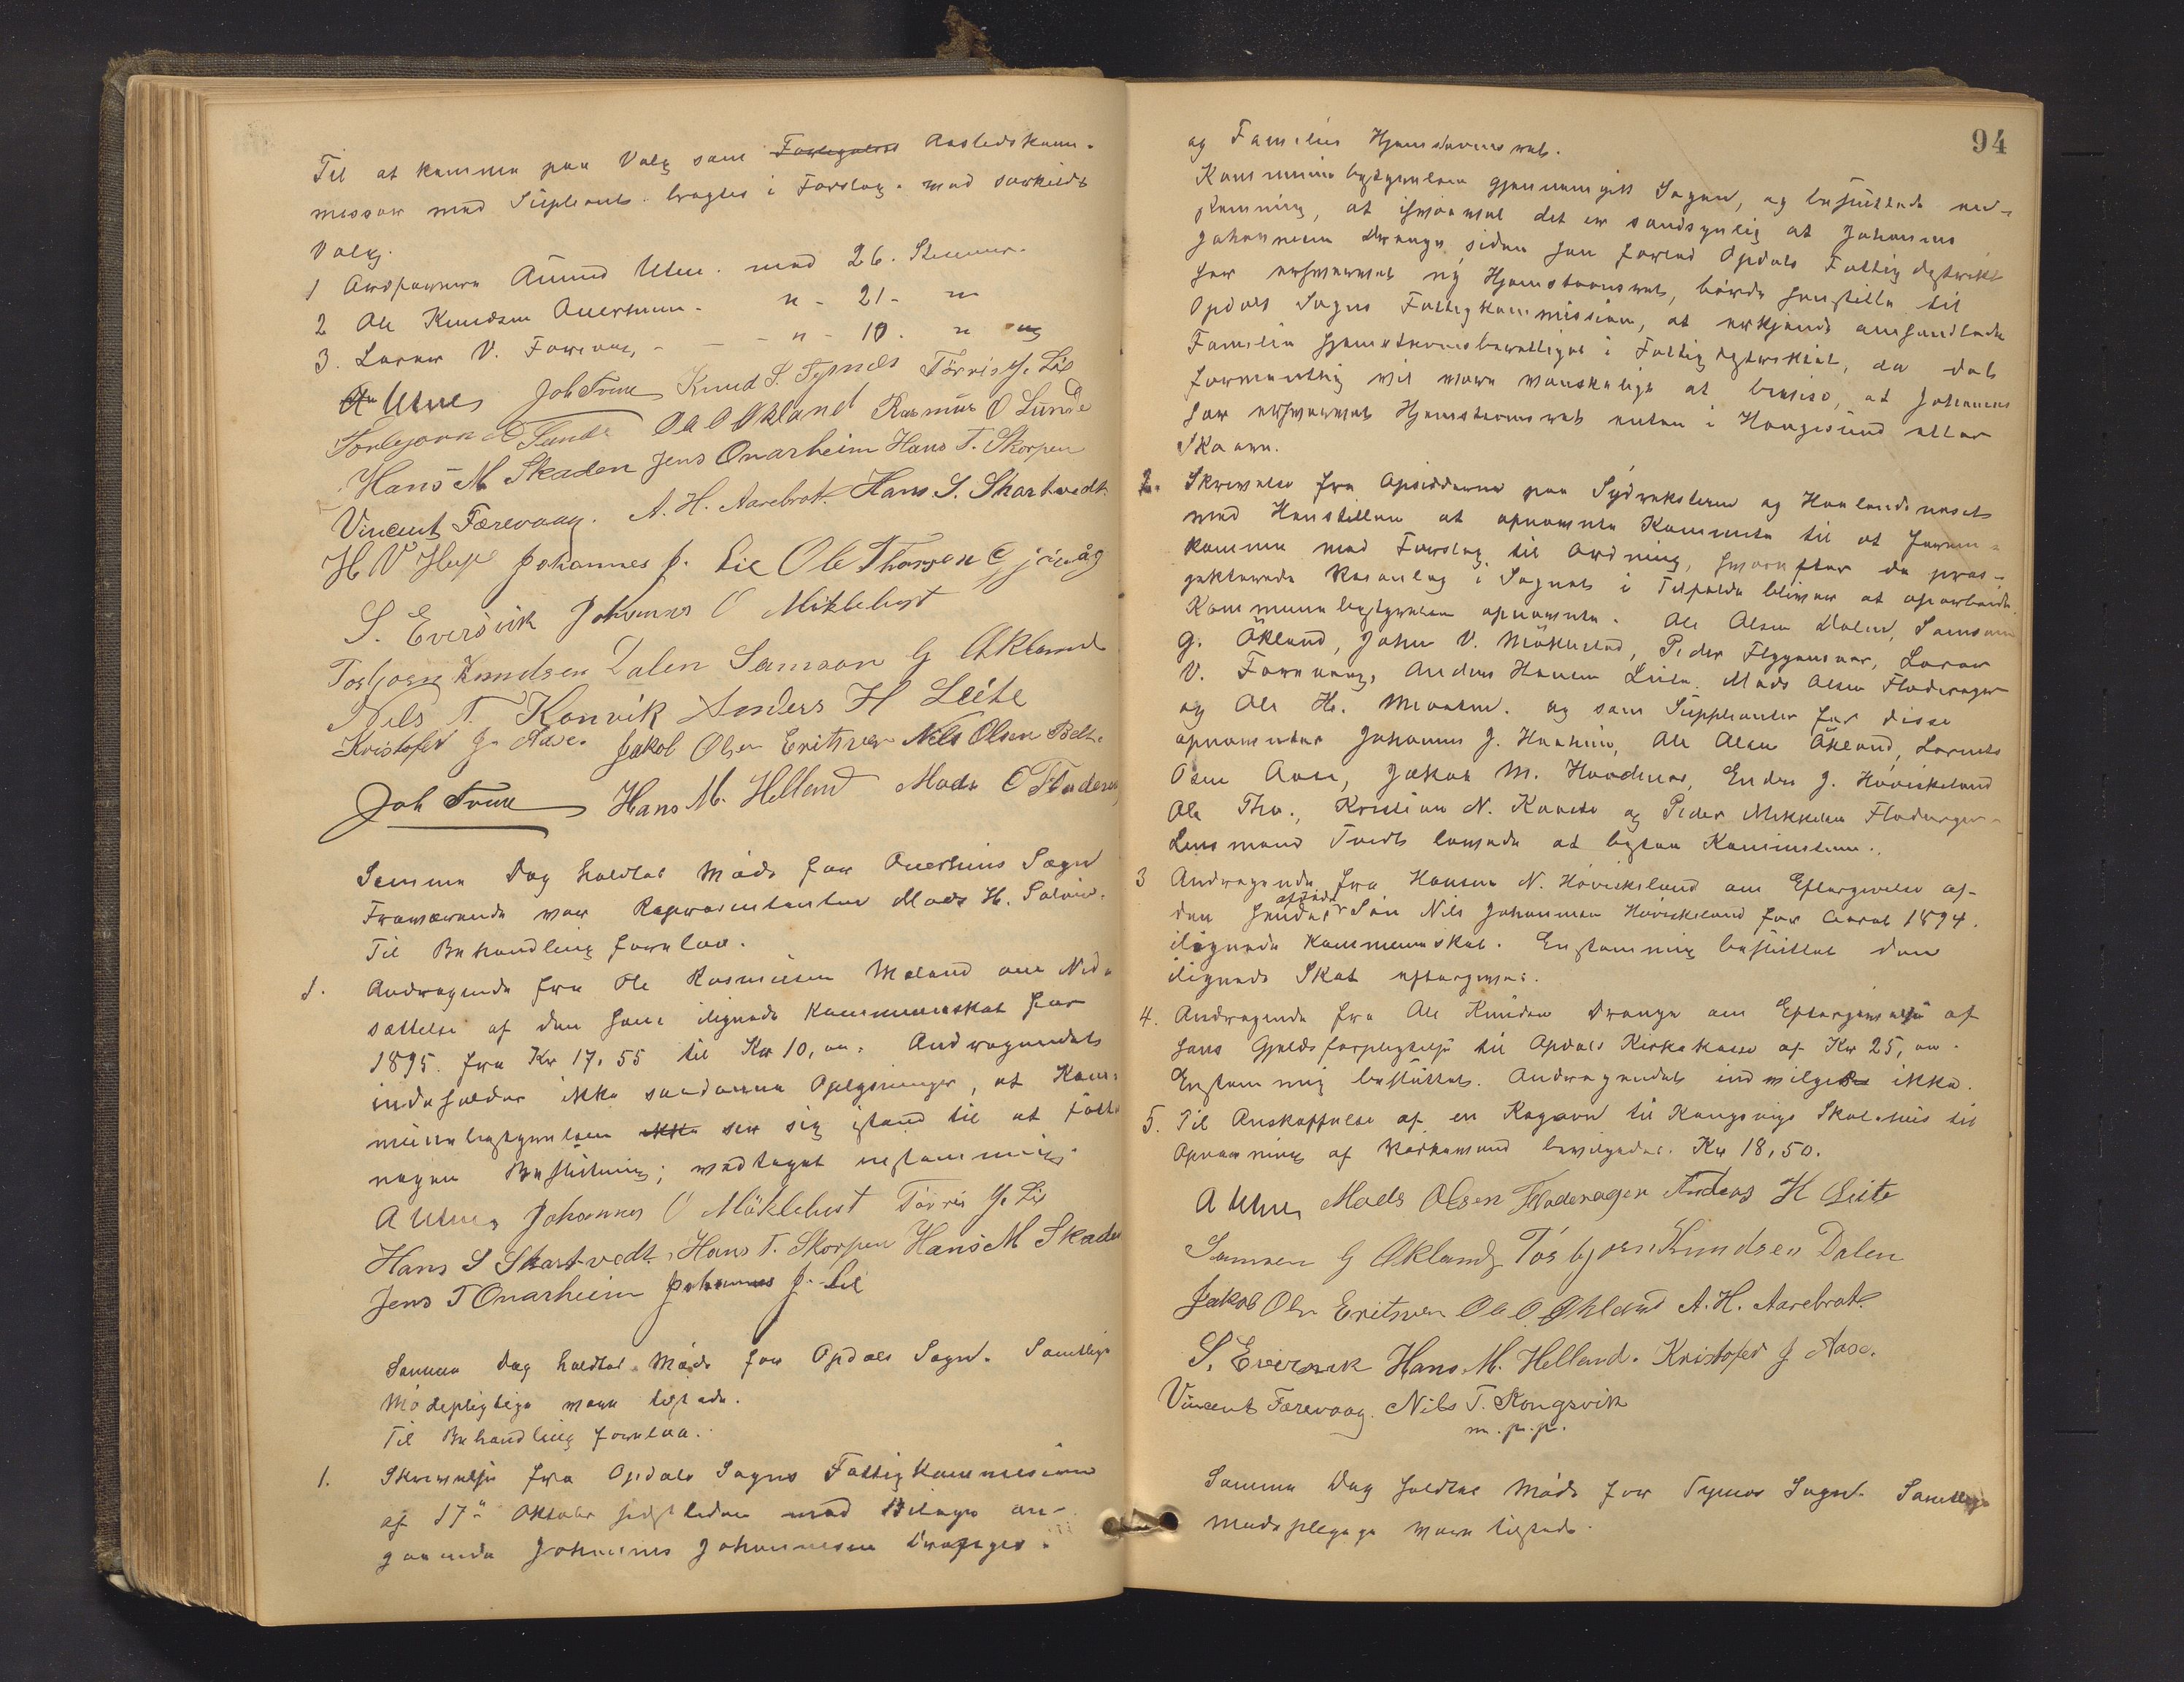 Til at komme paa Valg som Forligelses Aastedskom-
missær med Supleant bragtes i Forslag med særskildt
Valg.
1 Ordføreren Aamund Utne. med 26. Stemmer.
2 Ole Knudsen Onershiem. " - 21 - "
3. Lærer V. Færevaag, - - - " - 10. " og
A Utne Joh Tvedt Knud S. Tysnes Tørris J. Lie
Torbjørn O Lunde Ole O Økland Rasmus O Lunde
Hans M Skaden Jens Onarheim Hans T. Skorpen
Vincent Færevaag. A. H. Aarebrot. Hans S. Skartvedt
H V Heije Johannes J. Lie Ole Thorsen Gjeraåg
S. Eversvik Johannes O Møklebust
Torbjørn Knudsen Dalen Samson G Økland
Nils T. Konvik Anders H Leite
Kristofer J. Aase. Jakob Olsen Eritsver Nils Olsen Belt.
Joh Tvedt Hans M. Helland Mads O Flader
Samme Dag holdtes Møde for Onerhims Sogn
Fraværende var Repræsentanten Mads H. Solvie.
Til Behandling forelaa.
1. Andragende fra Ole Rasmusen Meland om Ned-
sættelse af den ham ilignede Kommuneskat for
1895. fra Kr 17,55 til Kr 10,00. Andragendet
indeholder ikke saadanne Oplysninger, at Kom-
munebestyrelsen ikke ser sig istand til at fatte
nogen Beslutning; vedtaget enstemmig.
A Utne, Johannes O Møklebust Tørris J. Lie
Hans S Skartvedt. Hans T. Skorpen Hans M Skaden
Jens T Onarheim Johannes J. Lie
Samme Dag holdtes Møde for Opdals Sogn. Samtlige
Mødepligtige være tilstede.
Til Behandling forelaa.
1. Skrivelse fra Opdals Sogns Fattigkommission
af 17de Oktober sidstleden med Bilage an-
gaaende Johannes Johannesen Dranges
94
og Families Hjemstavnsret.
Kommunebestyrelsen gjennemgik Sagen, og besluttede en-
stemmig, at hvorvel det er sandsynlig at Johannes
Johannesen Drange siden han forlod Opdals Fattigdistrikt
har erhvervet ny Hjemstavnsret, burde henstille til
Opdals Sogns Fattigkommission, at erkjende omhandlede
Familie hjemstavnsberettiget i Fattigdistriktet, da det
formentlig vil være vanskelige at bevise, at Johannes
har erhvervet Hjemstavnsret enten i Haugesund eller
Skaare.
2. Skrivelse fra Opsidderne paa Sydrekstene og Haalandsneset
med Henstillen at opnævnte Komite til at frem-
komme med Forslag til Ordning, hvorefter de pro-
jekterede Veianlæg i Sognet i Tilfælde bliver at oparbeide.
Kommunebestyrelsen opnævnte. Ole Olsen Dalen, Samson
G. Økland, Johan V. Møklested, Peder Flygansvær, Lærer
V. Færevaag, Anders Hansen Leite. Mads Olsen Fladerager
og Ole H. Mevatne. og som Supleanter for disse
opnævntes Johannes J. Haaheim, Ole Olsen Økland, Lorents
Osen Aase, Jakob M. Hovdenes, Endre J. Høviskeland
Ole Tho., Kristian N. Kaaste og Peder Mikkelsen Fladerager.
Lensmand Tvedt lovede at bistaa Komiteen.
3 Andragende fra Hansine N. Høviskeland om Eftergivelse af
den hendes afdøde Søn Nils Johannesen Høviskeland for Aaret 1894.
ilignede Kommuneskat. Enstemmig besluttet den
ilignede Skat eftergives.
4. Andragende fra Ole Knudsen Drange om Eftergivelse af
hans Gjeldsforpligtelse til Opdals Kirkekasse af Kr 25,00.
Enstemmig besluttet. Andragendet indvilges ikke.
5. Til Anskaffelse af en Kogeovn til Kongsvigs Skolehus til
Opvarming af Værkensund bevilgedes. Kr 18,50.
A Utne, Mads Olsen Fladerager Anders H Leite
Samson G Økland, Torbjørn Knudsen Dalen
Jakob Olsn Eritsver Ole O. Økland A. H. Aarebrot.
S. Eversvik Hans M. Helland. Kristofer J Aase.
Vincent Færevaag. Nils T. Kongsvik
m. p. p.
Samme Dag holdtes Møde for Tysnes Sogn. Samtlige
mødepligtige være tilstede.